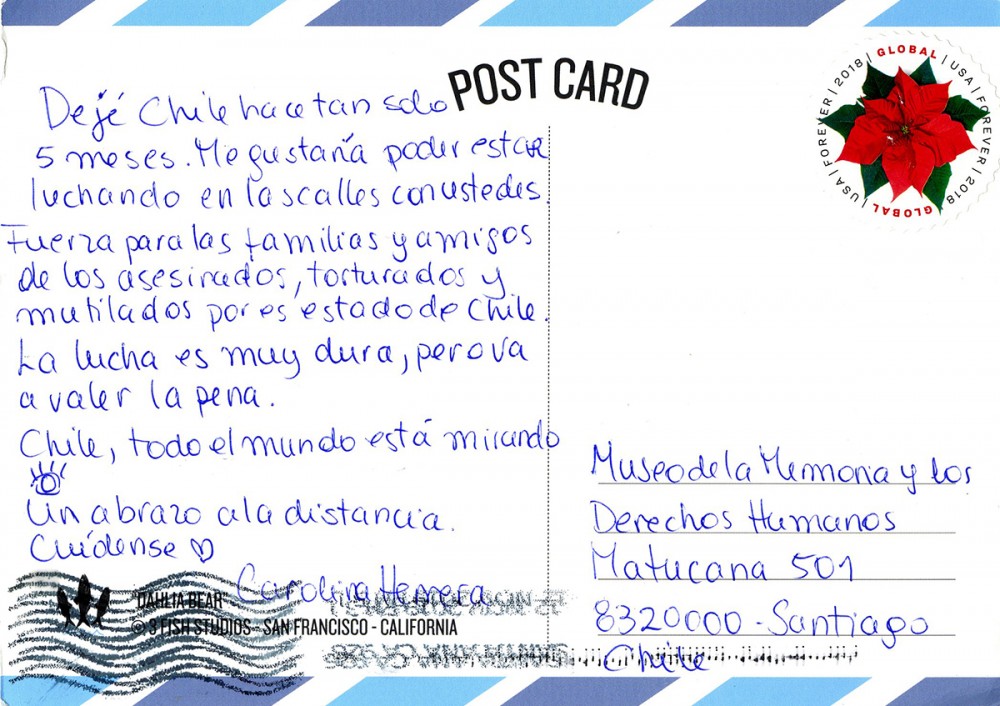 POST CARD
GLOBAL | USA | FOREVER | 2018 | GLOBAL | USA | FOREVER | 2018 |
Dejé Chile hace tan solo
5 meses. Me gustaría poder estar
luchando en las calles con ustedes.
Fuerza para las familias y amigos
de los asesinados, torturados y
mutilados por es estado de Chile.
La lucha es muy dura, pero va
a valer la pena.
Chile, todo el mundo está mirando
Un abrazo a la distancia.
Cuídense ♡
Carolina Herrera
Museo de la Memoria y los
Derechos Humanos
Matucana 501
8320000 - Santiago
Chile
DAHLIA BEAR
© 3 FISH STUDIOS - SAN FRANCISCO - CALIFORNIA